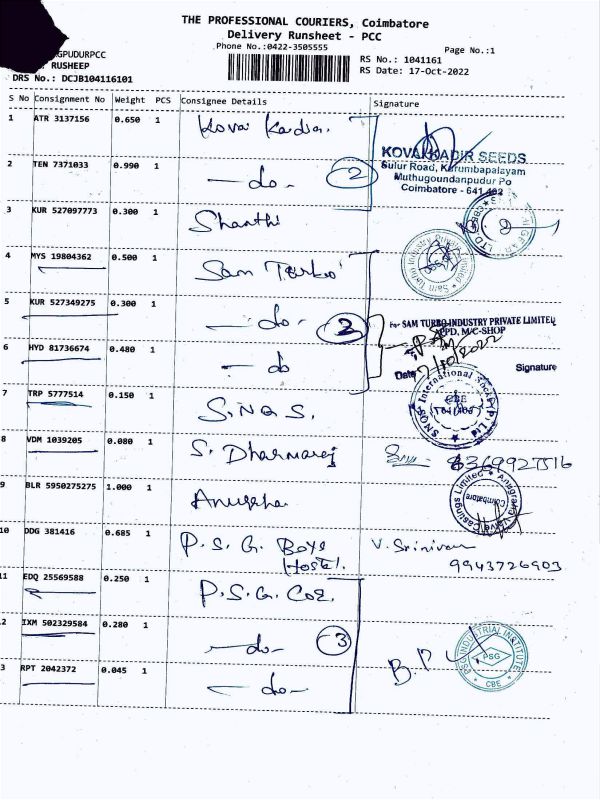 THE PROFESSIONAL COURIERS, Coimbatore
Delivery Runsheet - PCC
Phone No.:0422-3505555
Page No.:1
GPUDURPCC
RS No.: 1041161
RUSHEEP
RS Date: 17-Oct-2022
DRS No.: DCJB104116101
S No Consignment No Weight PCS Consignee Details Signature
1 ATR 3137156 0.650 1 Kovai Kadir
KOVAI KADIR SEEDS
Sulur Road, Karumbapalayam
Muthugoundanpudur Po
Coimbatore - 641 402
2 TEN 7371033 0.990 1 -do- 2
3 KUR 527097773 0.300 1 Shanthi
4 MYS 19804362 0.500 1 Sam Turbo
Sam Turbo Industry Private Limited
5 KUR 527349275 0.300 1 -do- 3
For SAM TURBO INDUSTRY PRIVATE LIMITED
M/C-SHOP
6 HYD 81736674 0.480 1 -do
Date Signature
7 TRP 5777514 0.150 1 S.N.Q.S.
SNQS International Socks (P) Ltd
CBE
8 VDM 1039205 0.080 1 S. Dharmaraj
9 BLR 5950275275 1.000 1 Anugraha
Anugraha Valve Castings Limited
Coimbatore
10 DDG 381416 0.685 1 P.S.G. Boys Hostel. V. Srinivasan
9943726903
11 EDQ 25569588 0.250 1 P.S.G. COE.
2 IXM 502329584 0.280 1 -do- 3
PSG INDUSTRIAL INSTITUTE
PSG
CBE
3 RPT 2042372 0.045 1 -do-